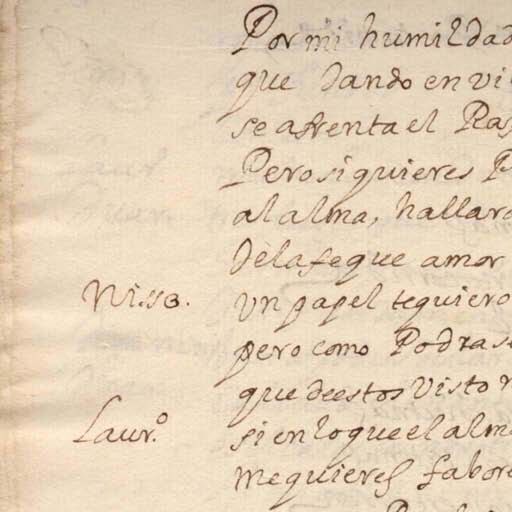 Por mi humildad
que dando en vi
se afrenta el Ra
Pero si quieres P
al alma, hallara
de la fe que amor
Nisso. Un papel te quiero
pero como Podras
que de estos Visto
Laur.º si en lo que el alm
me quieres fabore